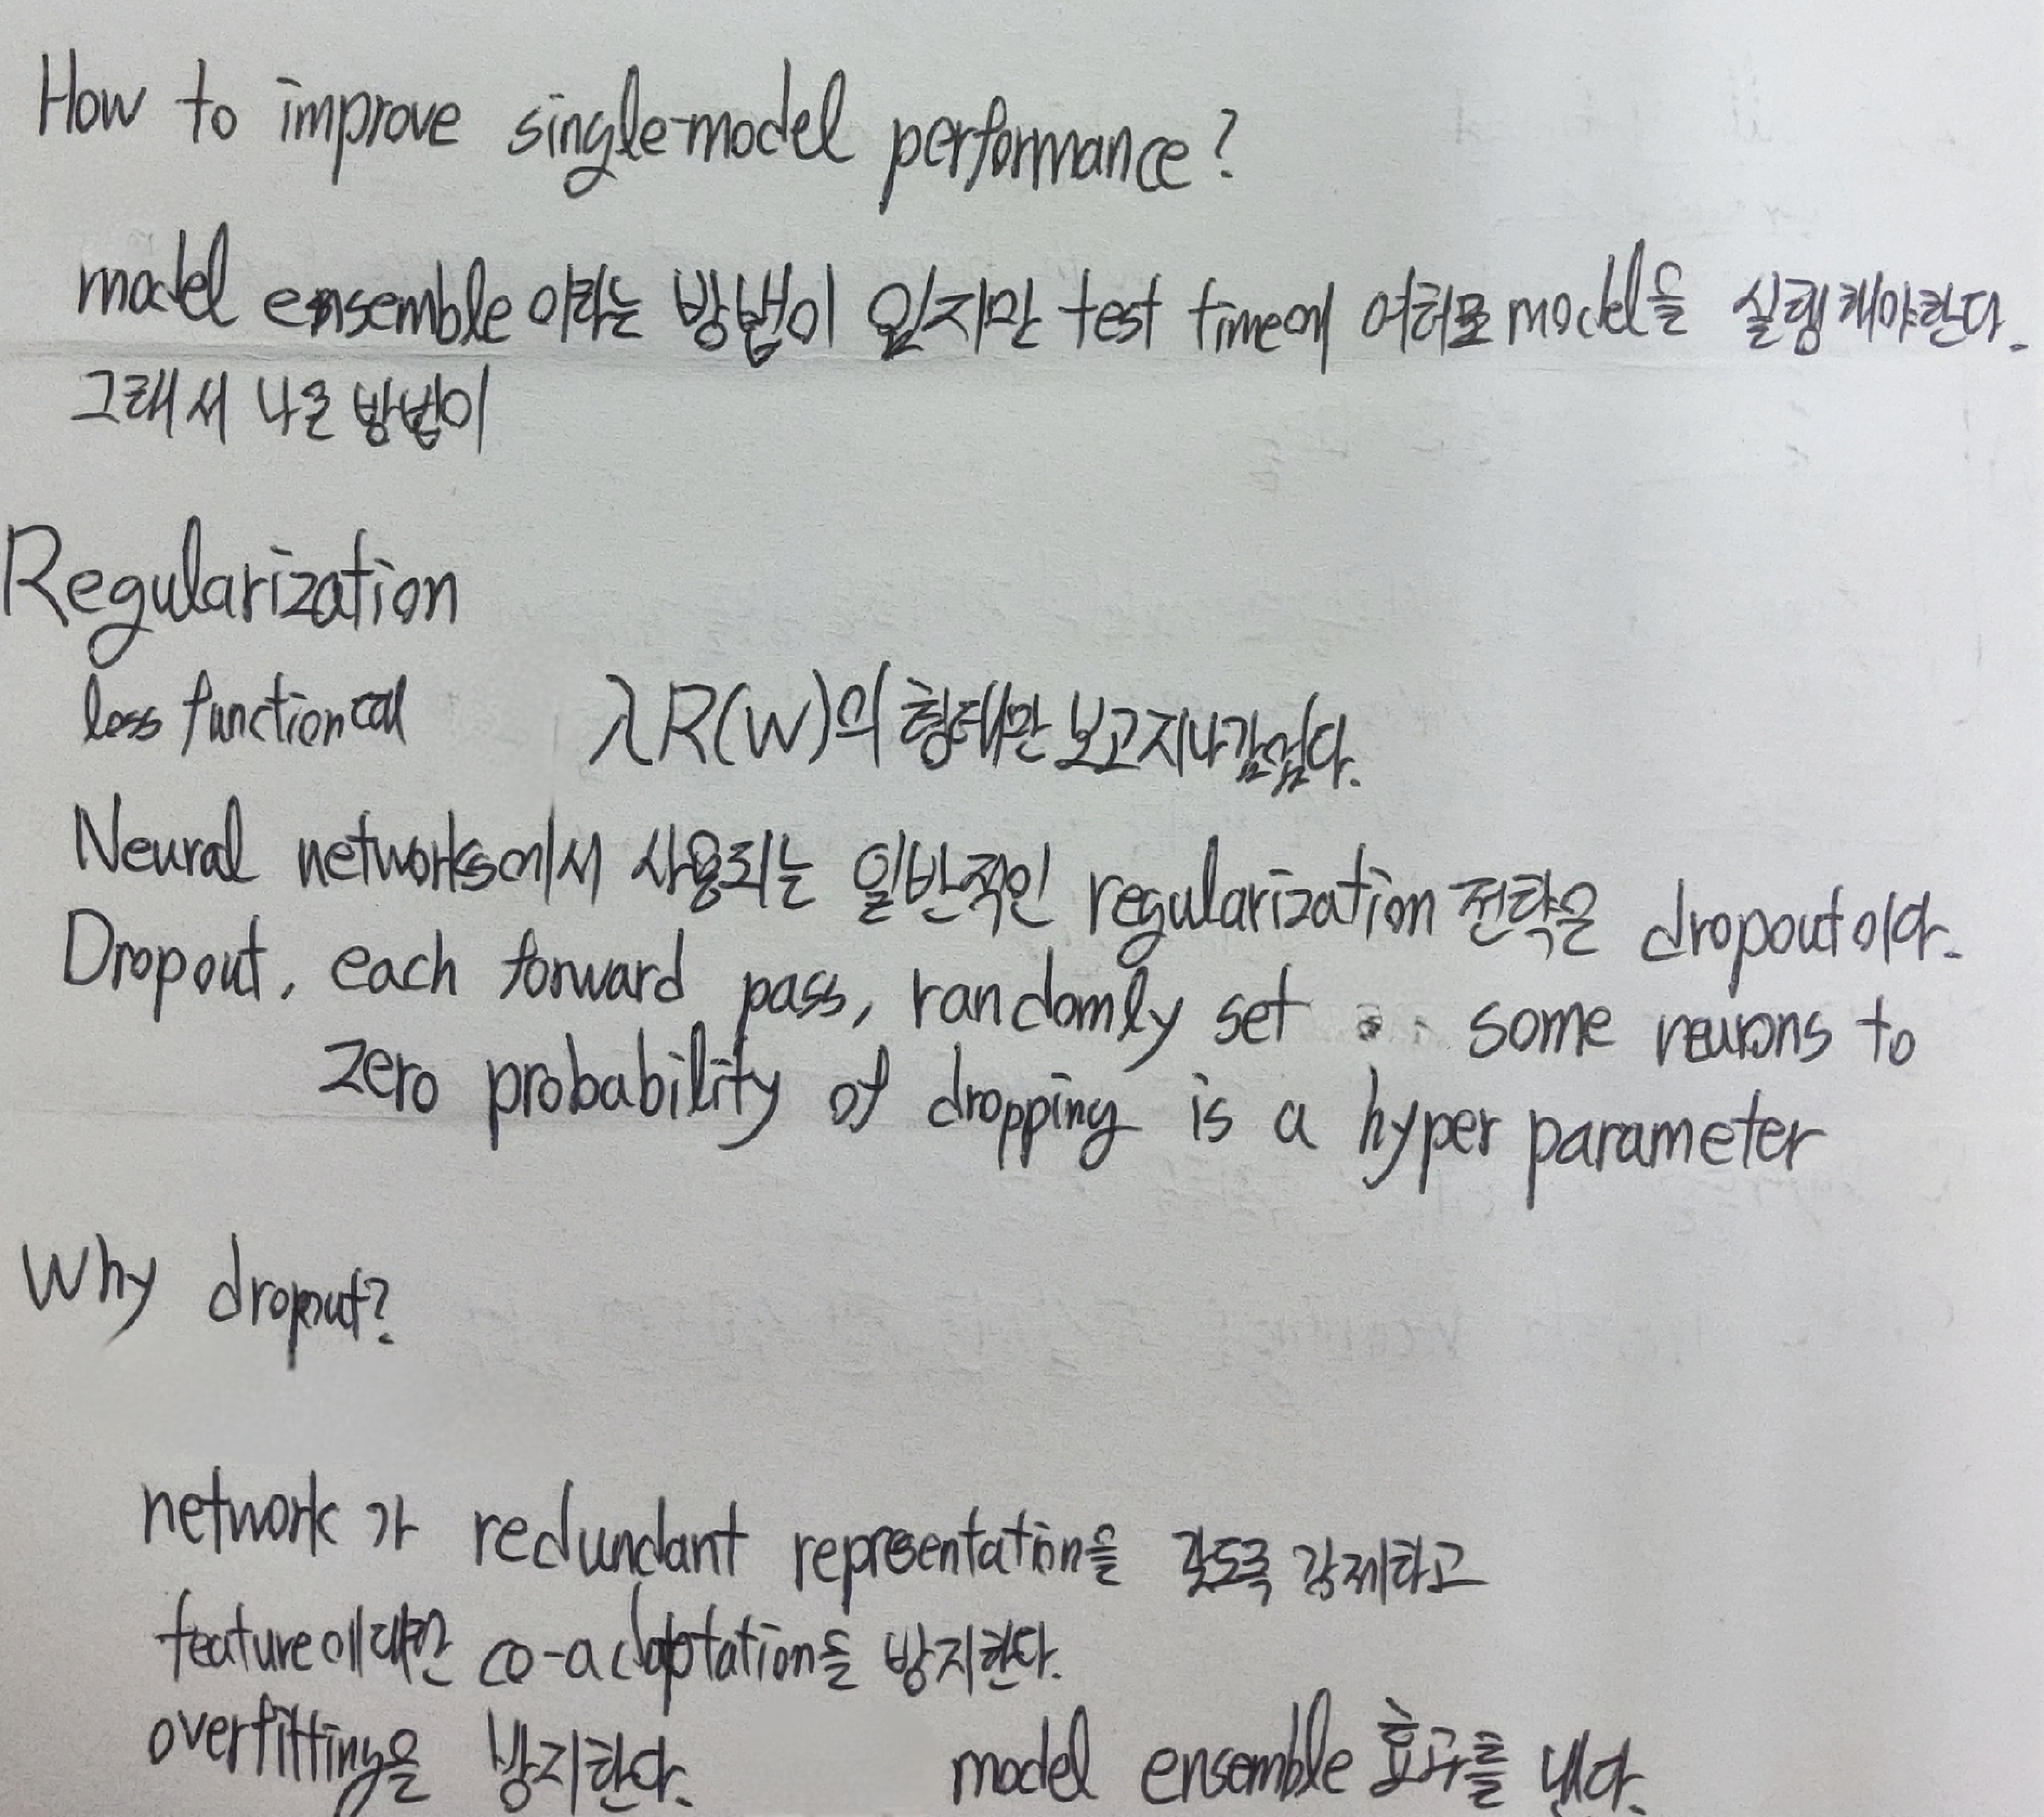 How to improve single-model performance?
model ensemble 이라는 방법이 있지만 test time에 여러 model을 실행해야한다.
그래서 나온 방법이
Regularization
loss function때 λR(W)의 형태만 보고 지나갔었다.
Neural networks에서 사용되는 일반적인 regularization 전략은 dropout이다.
Dropout, each forward pass, randomly set some neurons to
zero probability of dropping is a hyper parameter
Why dropout?
network 가 redundant representation을 갖도록 강제하고
feature에 대한 co-adaptation을 방지한다.
overfitting을 방지한다. model ensemble 효과를 낸다.